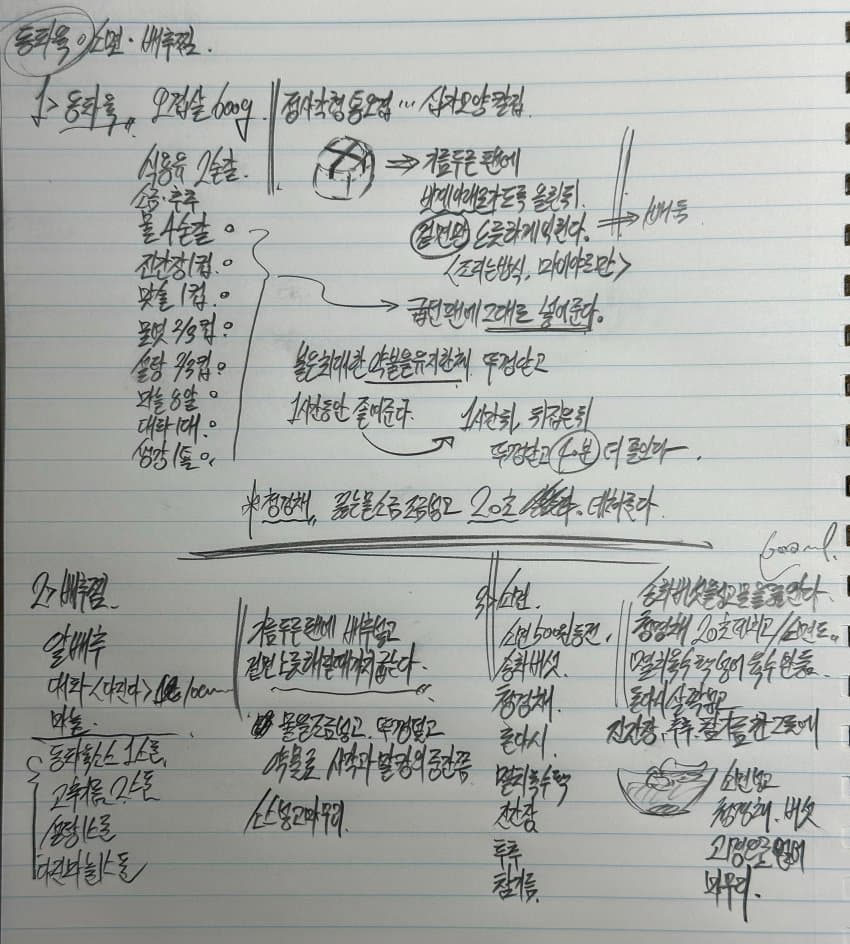 동파육·소면·배추찜.
1> 동파육
오겹살 600g.
식용유 2숟갈.
소금·후추
물 4숟갈
진간장 1컵.
맛술 1컵.
물엿 2/3컵.
설탕 2/3컵.
마늘 8알
대파 1대.
생강 1톨
정사각형 통오겹 … 십자모양 칼집.
⇒ 기름두른 팬에
올린뒤.
겉면만 노릇하게 익힌다.
<조리는방식, 마이야르만>
⇒ 배둑
→ 굽던팬에 그대로 넣어준다.
불은최대한 약불을유지한채. 뚜껑닫고
1시간동안 졸여준다.
1시간뒤, 뒤집은뒤
뚜껑닫고 40분 더 졸인다.
*청경채, 끓는물 소금 조금넣고 20초 데쳐준다.
2> 배추찜.
알배추
대파 <다진다> 10cm
마늘.
동파육소스 1스푼.
고추기름 2스푼
설탕 1스푼
다진마늘 1스푼
기름두른 팬에 배추넣고
겉면 노릇해질때까지 굽는다.
물을조금넣고. 뚜껑덮고
약불로 사각과 물컹의 중간쯤
소스넣고마무리.
3> 소면.
소면 500원동전.
송화버섯.
청경채.
혼다시.
멸치육수팩
진간장
후추
참기름.
600ml.
송화버섯을넣고물을끓인다.
청경채 20초데치고/소면도..
멸치육수팩 넣어 육수만듦.
혼다시 살짝넣고
진간장, 후추. 참기름한그릇에
소면넣고
청경채. 버섯
고명으로 얹어
마무리.